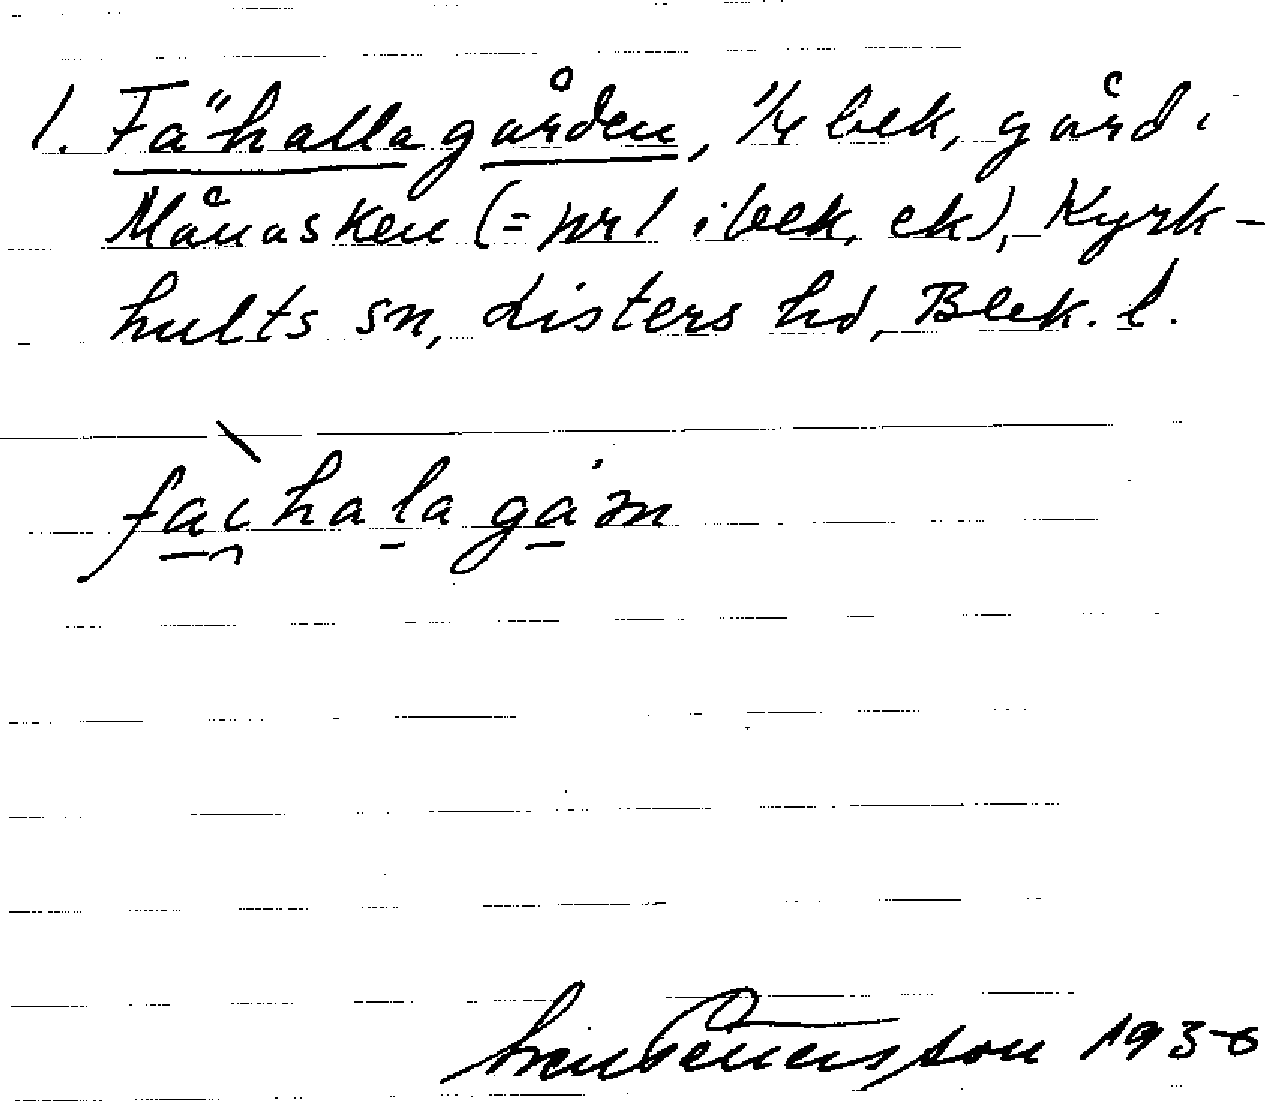 1. Fähallagården, 1/4 bek, gård i
Månasken (= nr 1 i bek, ek), Kyrk-
hults sn, Listers hd, Blek. l.
fai̯halagå
Sven Benson 1936